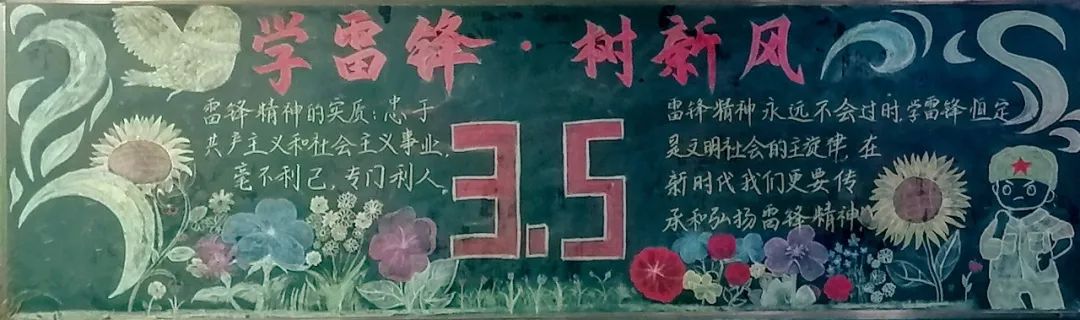 学雷锋·树新风
雷锋精神的实质：忠于
共产主义和社会主义事业，
毫不利己，专门利人。
3.5
雷锋精神永远不会过时，学雷锋恒定
是文明社会的主旋律，在
新时代我们更要传
承和弘扬雷锋精神。